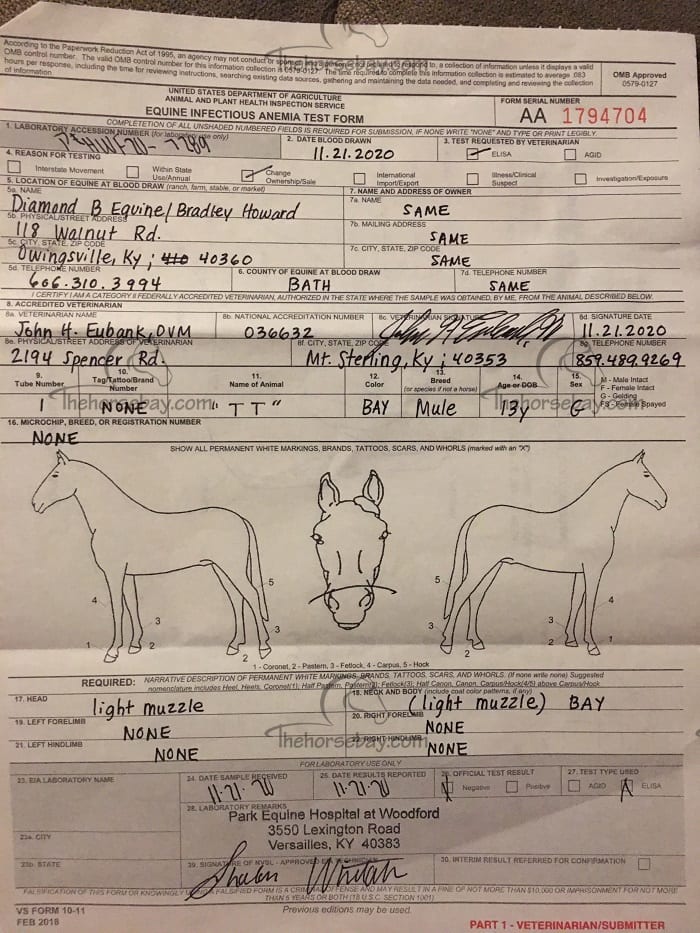 According to the Paperwork Reduction Act of 1995, an agency may not conduct or sponsor, and a person is not required to respond to, a collection of information unless it displays a valid
OMB control number. The valid OMB control number for this information collection is 0579-0127. The time required to complete this information collection is estimated to average .083
hours per response, including the time for reviewing instructions, searching existing data sources, gathering and maintaining the data needed, and completing and reviewing the collection
of information.
OMB Approved
0579-0127
UNITED STATES DEPARTMENT OF AGRICULTURE
ANIMAL AND PLANT HEALTH INSPECTION SERVICE
EQUINE INFECTIOUS ANEMIA TEST FORM
FORM SERIAL NUMBER
AA 1794704
COMPLETETION OF ALL UNSHADED NUMBERED FIELDS IS REQUIRED FOR SUBMISSION, IF NONE WRITE "NONE" AND TYPE OR PRINT LEGIBLY.
1. LABORATORY ACCESSION NUMBER (for laboratory use only)
2. DATE BLOOD DRAWN
11.21.2020
3. TEST REQUESTED BY VETERINARIAN
ELISA AGID
4. REASON FOR TESTING
Interstate Movement
Within State Use/Annual
Change Ownership/Sale
International Import/Export
Illness/Clinical Suspect
Investigation/Exposure
5. LOCATION OF EQUINE AT BLOOD DRAW (ranch, farm, stable, or market)
7. NAME AND ADDRESS OF OWNER
5a. NAME
Diamond B Equine/ Bradley Howard
7a. NAME
SAME
5b. PHYSICAL/STREET ADDRESS
118 Walnut Rd.
7b. MAILING ADDRESS
SAME
5c. CITY, STATE, ZIP CODE
Owingsville, Ky ; 40360
7c. CITY, STATE, ZIP CODE
SAME
5d. TELEPHONE NUMBER
606.310.3994
6. COUNTY OF EQUINE AT BLOOD DRAW
BATH
7d. TELEPHONE NUMBER
SAME
I CERTIFY I AM A CATEGORY II FEDERALLY ACCREDITED VETERINARIAN, AUTHORIZED IN THE STATE WHERE THE SAMPLE WAS OBTAINED, BY ME, FROM THE ANIMAL DESCRIBED BELOW.
8. ACCREDITED VETERINARIAN
8a. VETERINARIAN NAME
John H. Eubank, DVM
8b. NATIONAL ACCREDITATION NUMBER
036632
8c. VETERINARIAN SIGNATURE
8d. SIGNATURE DATE
11.21.2020
8e. PHYSICAL/STREET ADDRESS OF VETERINARIAN
2194 Spencer Rd.
8f. CITY, STATE, ZIP CODE
Mt. Sterling, Ky ; 40353
8g. TELEPHONE NUMBER
859.489.9269
9. Tube Number
10. Tag/Tattoo/Brand Number
11. Name of Animal
12. Color
13. Breed (or species if not a horse)
14. Age or DOB
15. Sex
M - Male Intact
F - Female Intact
G - Gelding
FS - Female Spayed
1 NONE "TT" BAY Mule 13y G
Thehorsebay.com
Thehorsebay.com
16. MICROCHIP, BREED, OR REGISTRATION NUMBER
NONE
SHOW ALL PERMANENT WHITE MARKINGS, BRANDS, TATTOOS, SCARS, AND WHORLS (marked with an "X")
5 5
4 4
3 3 3 3
1 2 2 2 2 1
1 - Coronet, 2 - Pastern, 3 - Fetlock, 4 - Carpus, 5 - Hock
REQUIRED: NARRATIVE DESCRIPTION OF PERMANENT WHITE MARKINGS, BRANDS, TATTOOS, SCARS, AND WHORLS. (If none write none) Suggested
nomenclature includes Heel, Heels, Coronet(1); Half Pastern, Pastern(2); Fetlock(3); Half Canon, Canon, Carpus/Hock(4/5) above Carpus/Hock
17. HEAD
light muzzle
18. NECK AND BODY (include coat color patterns, if any)
(light muzzle) BAY
19. LEFT FORELIMB
NONE
20. RIGHT FORELIMB
NONE
21. LEFT HINDLIMB
NONE
22. RIGHT HINDLIMB
NONE
Thehorsebay.com
FOR LABORATORY USE ONLY
23. EIA LABORATORY NAME
24. DATE SAMPLE RECEIVED
11.21.20
25. DATE RESULTS REPORTED
11.21.20
26. OFFICIAL TEST RESULT
Negative Positive
27. TEST TYPE USED
AGID ELISA
28. LABORATORY REMARKS
Park Equine Hospital at Woodford
3550 Lexington Road
Versailles, KY 40383
23a. CITY
23b. STATE
29. SIGNATURE OF NVSL - APPROVED EIA TECHNICIAN
30. INTERIM RESULT REFERRED FOR CONFIRMATION
FALSIFICATION OF THIS FORM OR KNOWINGLY USING A FALSIFIED FORM IS A CRIMINAL OFFENSE AND MAY RESULT IN A FINE OF NOT MORE THAN $10,000 OR IMPRISONMENT FOR NOT MORE
THAN 5 YEARS OR BOTH (18 U.S.C. SECTION 1001)
VS FORM 10-11
FEB 2018
Previous editions may be used.
PART 1 - VETERINARIAN/SUBMITTER